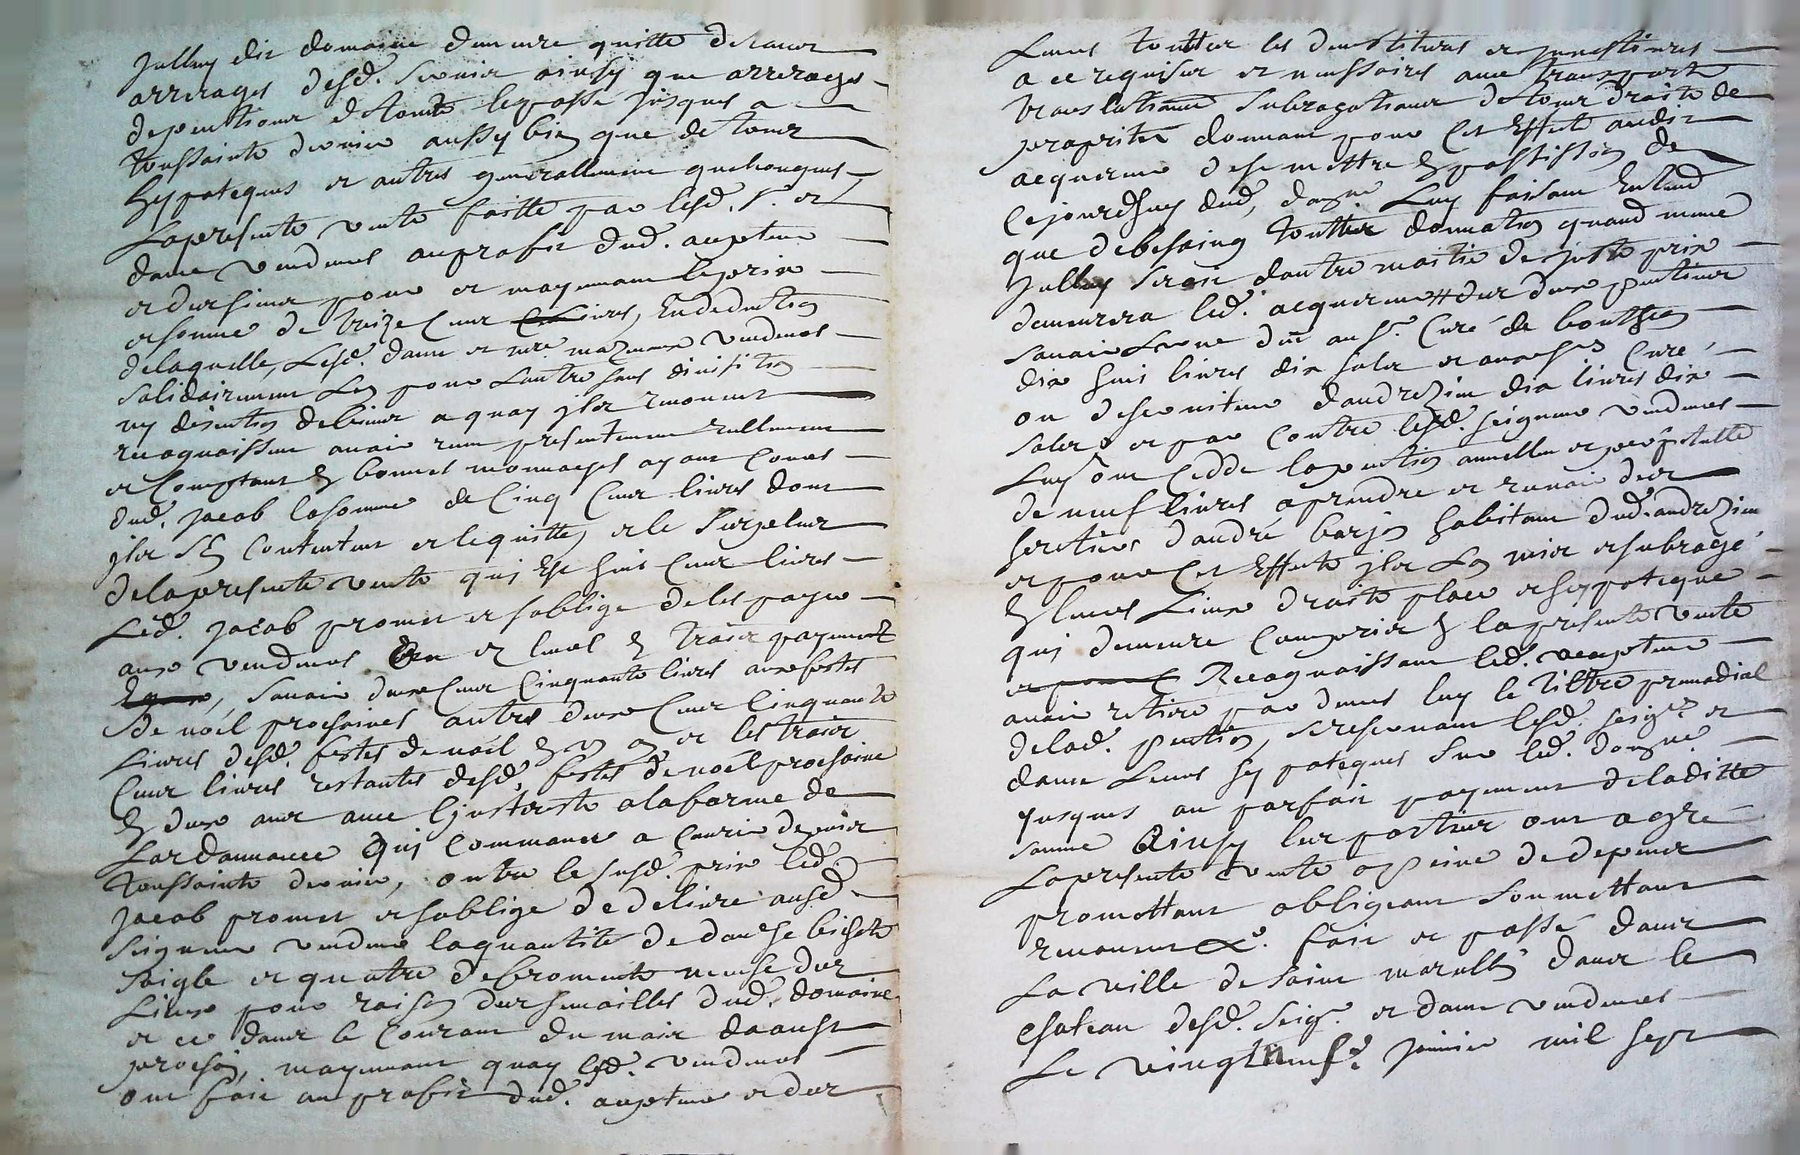 Jullieu dit domaine demeure quitte de tous
arrerages desd. servis ainsy que arrerages
de pentions et toute le passé jusques a
toussaints dernier aussy bien que de tous
hypoteques et autres generallement quelconques
la presente vente faitte par lesd. Sr. et
dame vendeurs au profit dud. acepteur
et des siens pour et moyenant le prix
et somme de treize cent livres, En deduction
de laquelle, lesd. dame et vendeurs
solidairement L'un pour L'autre sans division
ny discution de biens a quoy ils renoncent
recognoissent avoir receu presentement réellement
et Comptant En bonnes monnoyes ayant Cours
dud. Jacob la somme de Cinq Cent livres dont
ils s'en Contentent et le quitte, et le Surplus
de la presente vente qui Est huit Cent livres
Led. Jacob promet et soblige de les payer
aux vendeurs et leurs En trois payements
, savoir deux Cent Cinquante livres aux festes
de noel prochaines autres deux Cent Cinquante
livres desd. festes de noel En un an et les trois
Cent livres restantes desd. festes de noel prochaine
En deux ans avec L'interests a la forme de
Lordonnance Qui Commance a Courir depuis
toussaints dernier, outre le susd. prix led.
Jacob promet et soblige de delivré ausd.
seigneur vendeur la quantité de douse bichets
seigle et quatre de froment mesure des
Lieux pour raison des semailles dud. domaine
et ce dans le Courant du mois daoust
prochain, moyenant quoy lesd. vendeurs
ont fait au profit dud. acepteur et des
Leurs touttes les devestitures et investitures
a ce requises et necessaires avec transports
translations Subrogations de tous droits de
propriété donnant pour cet Effet audit
acquereur de se mettre En possession de
Cejourdhuy dud. dom.ne Luy faisant En tant
que de besoing touttes donnation quand meme
Jullieu seroit dautre moitié de juste prix
demeurera led. acquereur des deux pentions
savoir L'une düe au Sr. Curé de bouthéon
dix huit livres dix sols et aux Srs Curé
ou desserviteur dandrezieu dix livres dix
sols et par Contre lesd. seigneur vendeurs
Luy ont Cedde la pention annuelle et perpetuelle
de neuf livres a prendre et recevoir des
heritiers d'andré barjon habitant dud. andrezieu
et pour Cet Effet ils L'en mis et subrogé
En leurs Lieux droits place et hypoteque
qui demeure Comprise En la presente vente
Recognoissant led. acepteur
avoir retiré par devers luy le tiltre primordial
de lad. pention, se reservant lesd. seigrs et
dame Leurs hypoteques Sur led. dom.ne
jusques au parfait payement de la ditte
somme Ainsy les parties ont agrée
La presente vente a peine de depens
promettant obligeant soumettant
renoncent &a. fait et passé dans
La ville de saint marcellin dans le
chateau desd. seigr. et dame vendeurs
Le vingt neufe. janvier mil sept